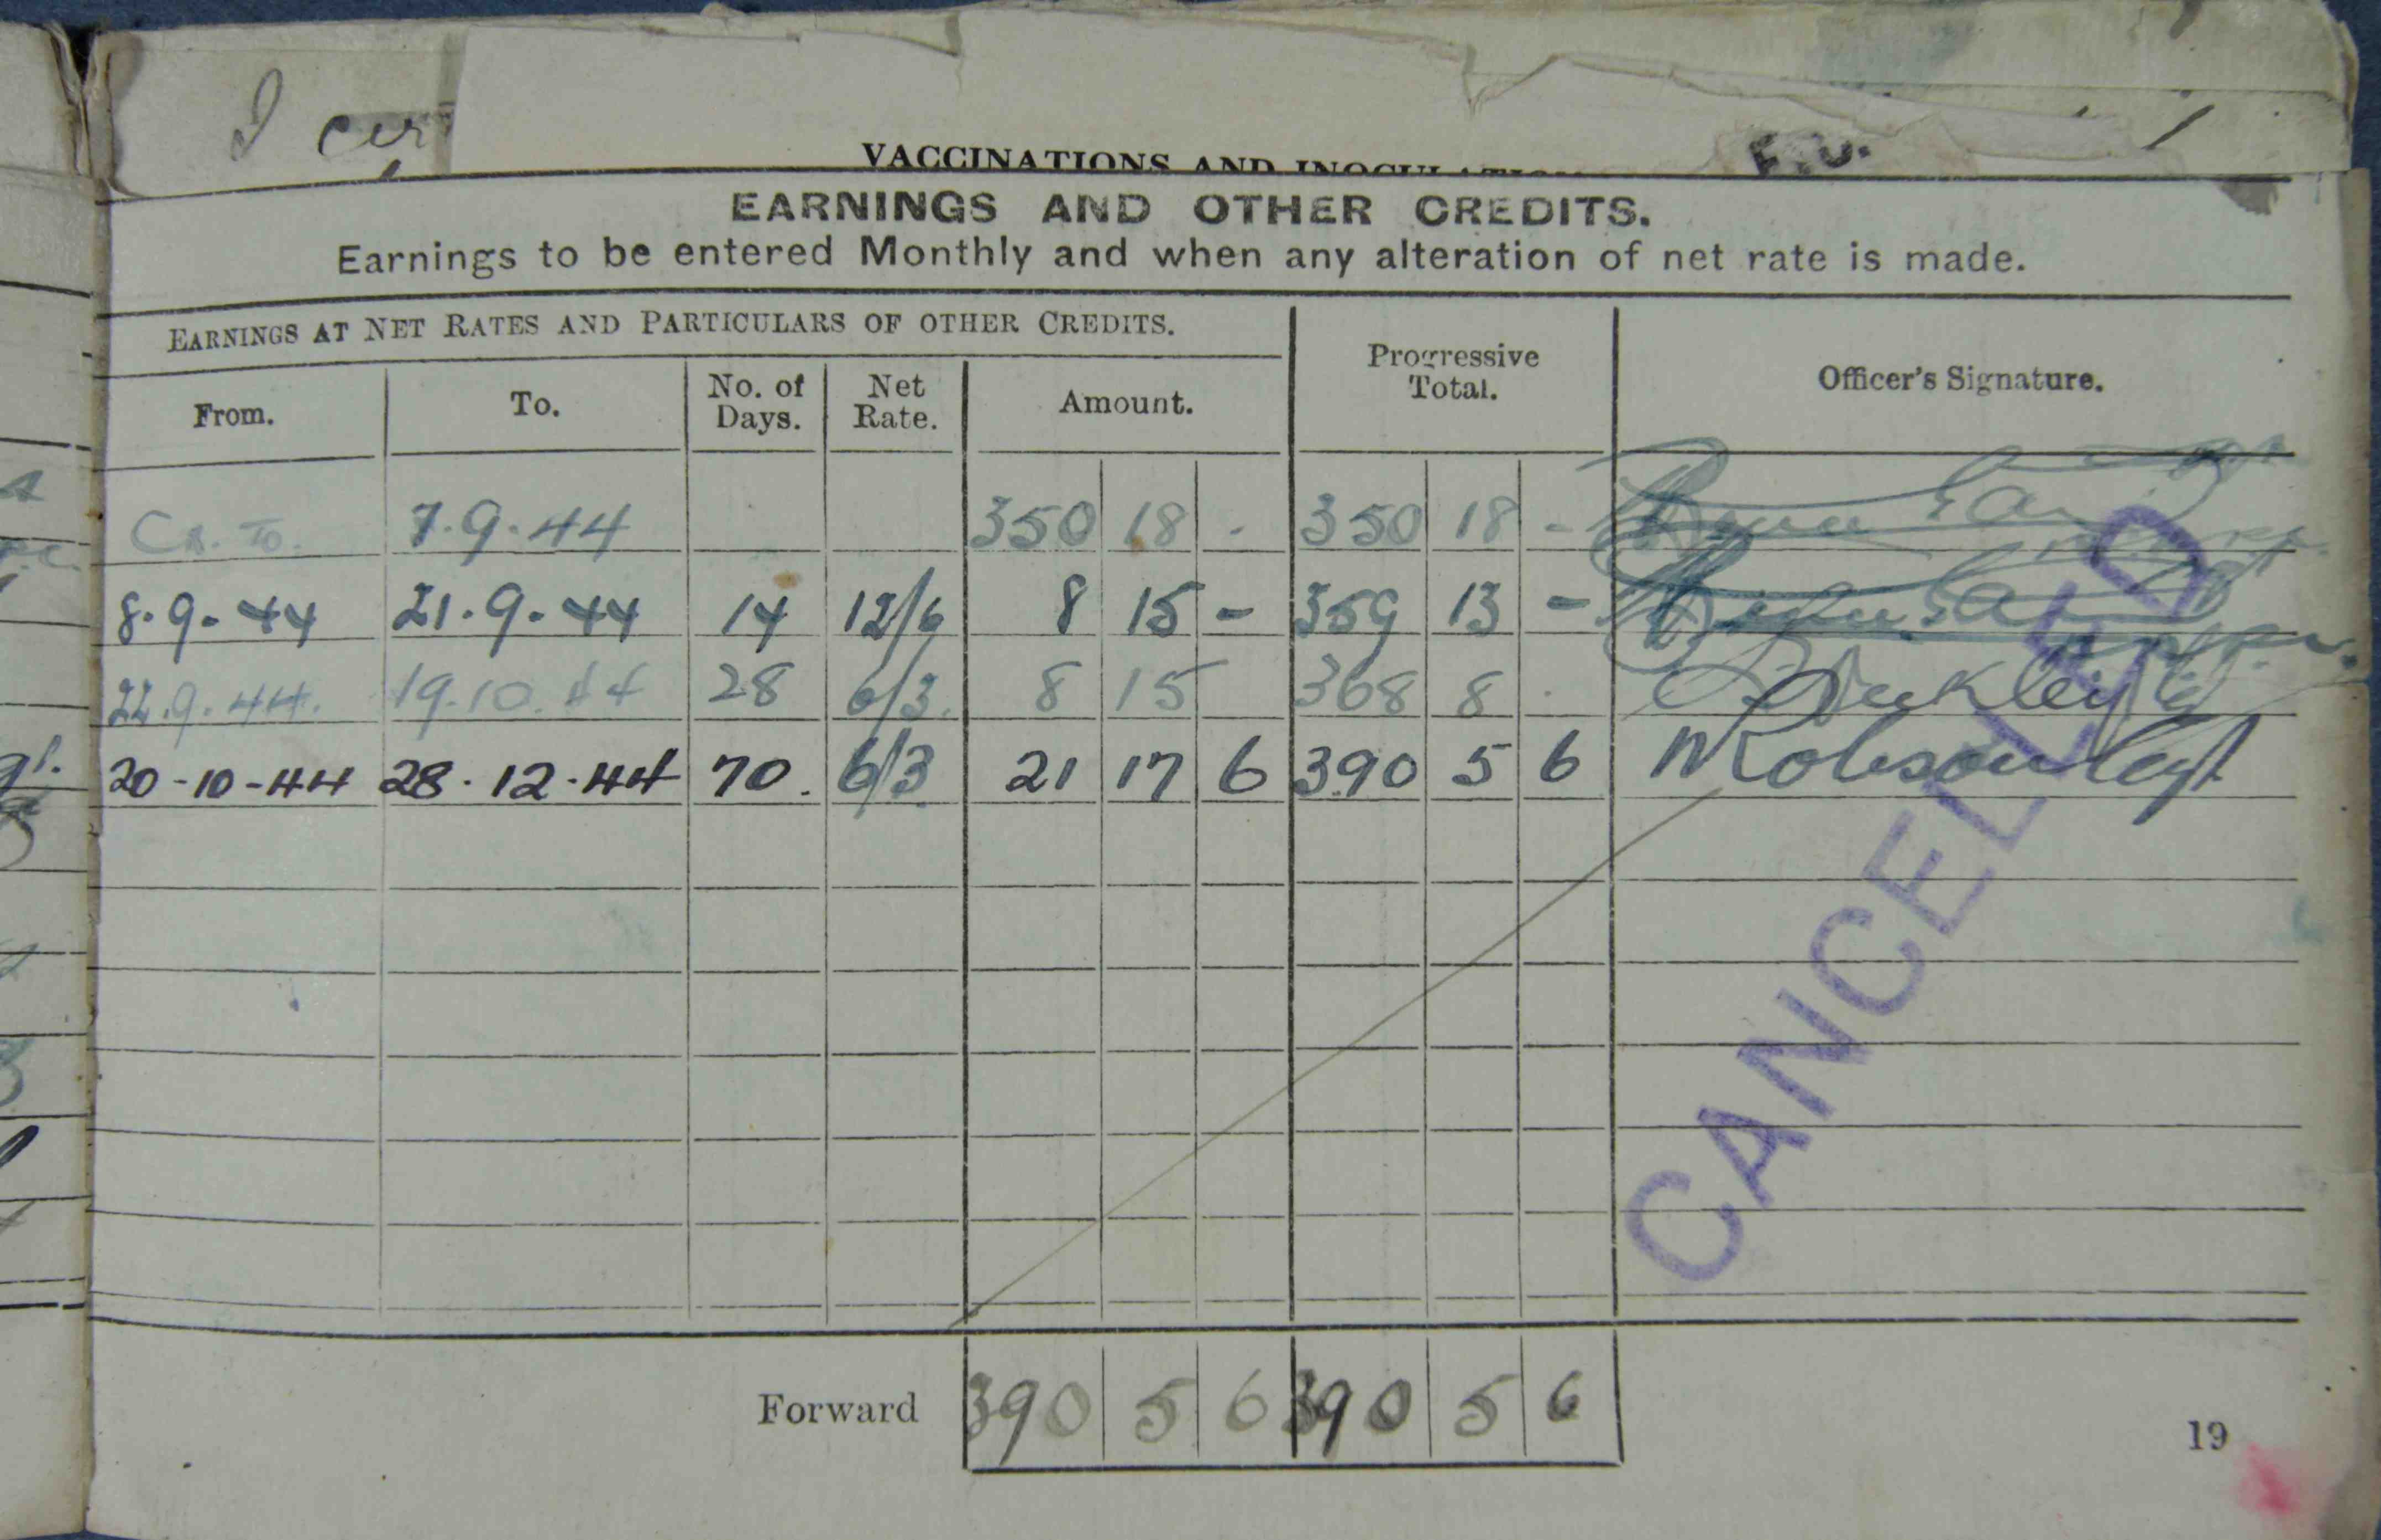 I cer
VACCINATIONS AND INOCULATIONS
F.U.
EARNINGS AND OTHER CREDITS.
Earnings to be entered Monthly and when any alteration of net rate is made.
EARNINGS AT NET RATES AND PARTICULARS OF OTHER CREDITS.
Progressive Total.
Officer's Signature.
From. To. No. of Days. Net Rate. Amount.
CR. To. 7.9.44 350 18 - 350 18 -
8.9.44 21.9.44 14 12/6 8 15 - 359 13 -
22.9.44. 19.10.44 28 6/3. 8 15 368 8 .
20-10-44 28.12.44 70. 6/3 21 17 6 390 5 6 Robson Capt
CANCELLED
Forward 390 5 6 390 5 6
19